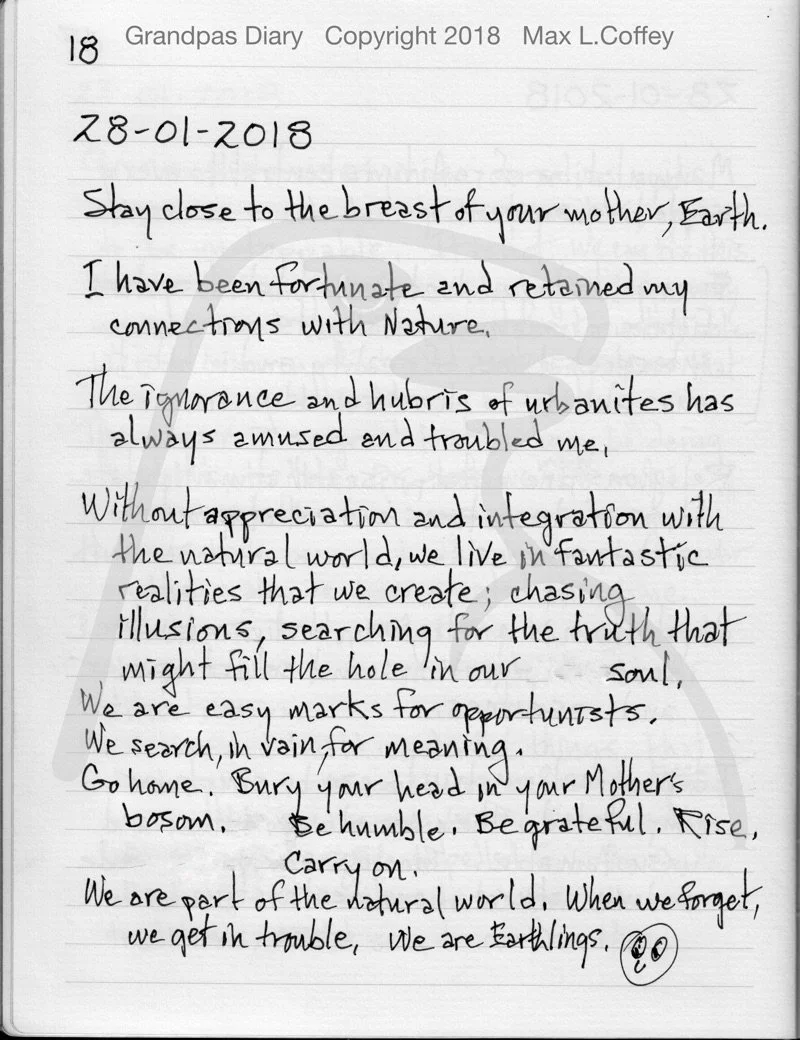 18 Grandpas Diary Copyright 2018 Max L.Coffey
28-01-2018
Stay close to the breast of your mother, Earth.
I have been fortunate and retained my
connections with Nature.
The ignorance and hubris of urbanites has
always amused and troubled me.
Without appreciation and integration with
the natural world, we live in fantastic
realities that we create; chasing
illusions, searching for the truth that
might fill the hole in our soul.
We are easy marks for opportunists.
We search, in vain, for meaning.
Go home. Bury your head in your Mother's
bosom. Be humble. Be grateful. Rise.
Carry on.
We are part of the natural world. When we forget,
we get in trouble. We are Earthlings.